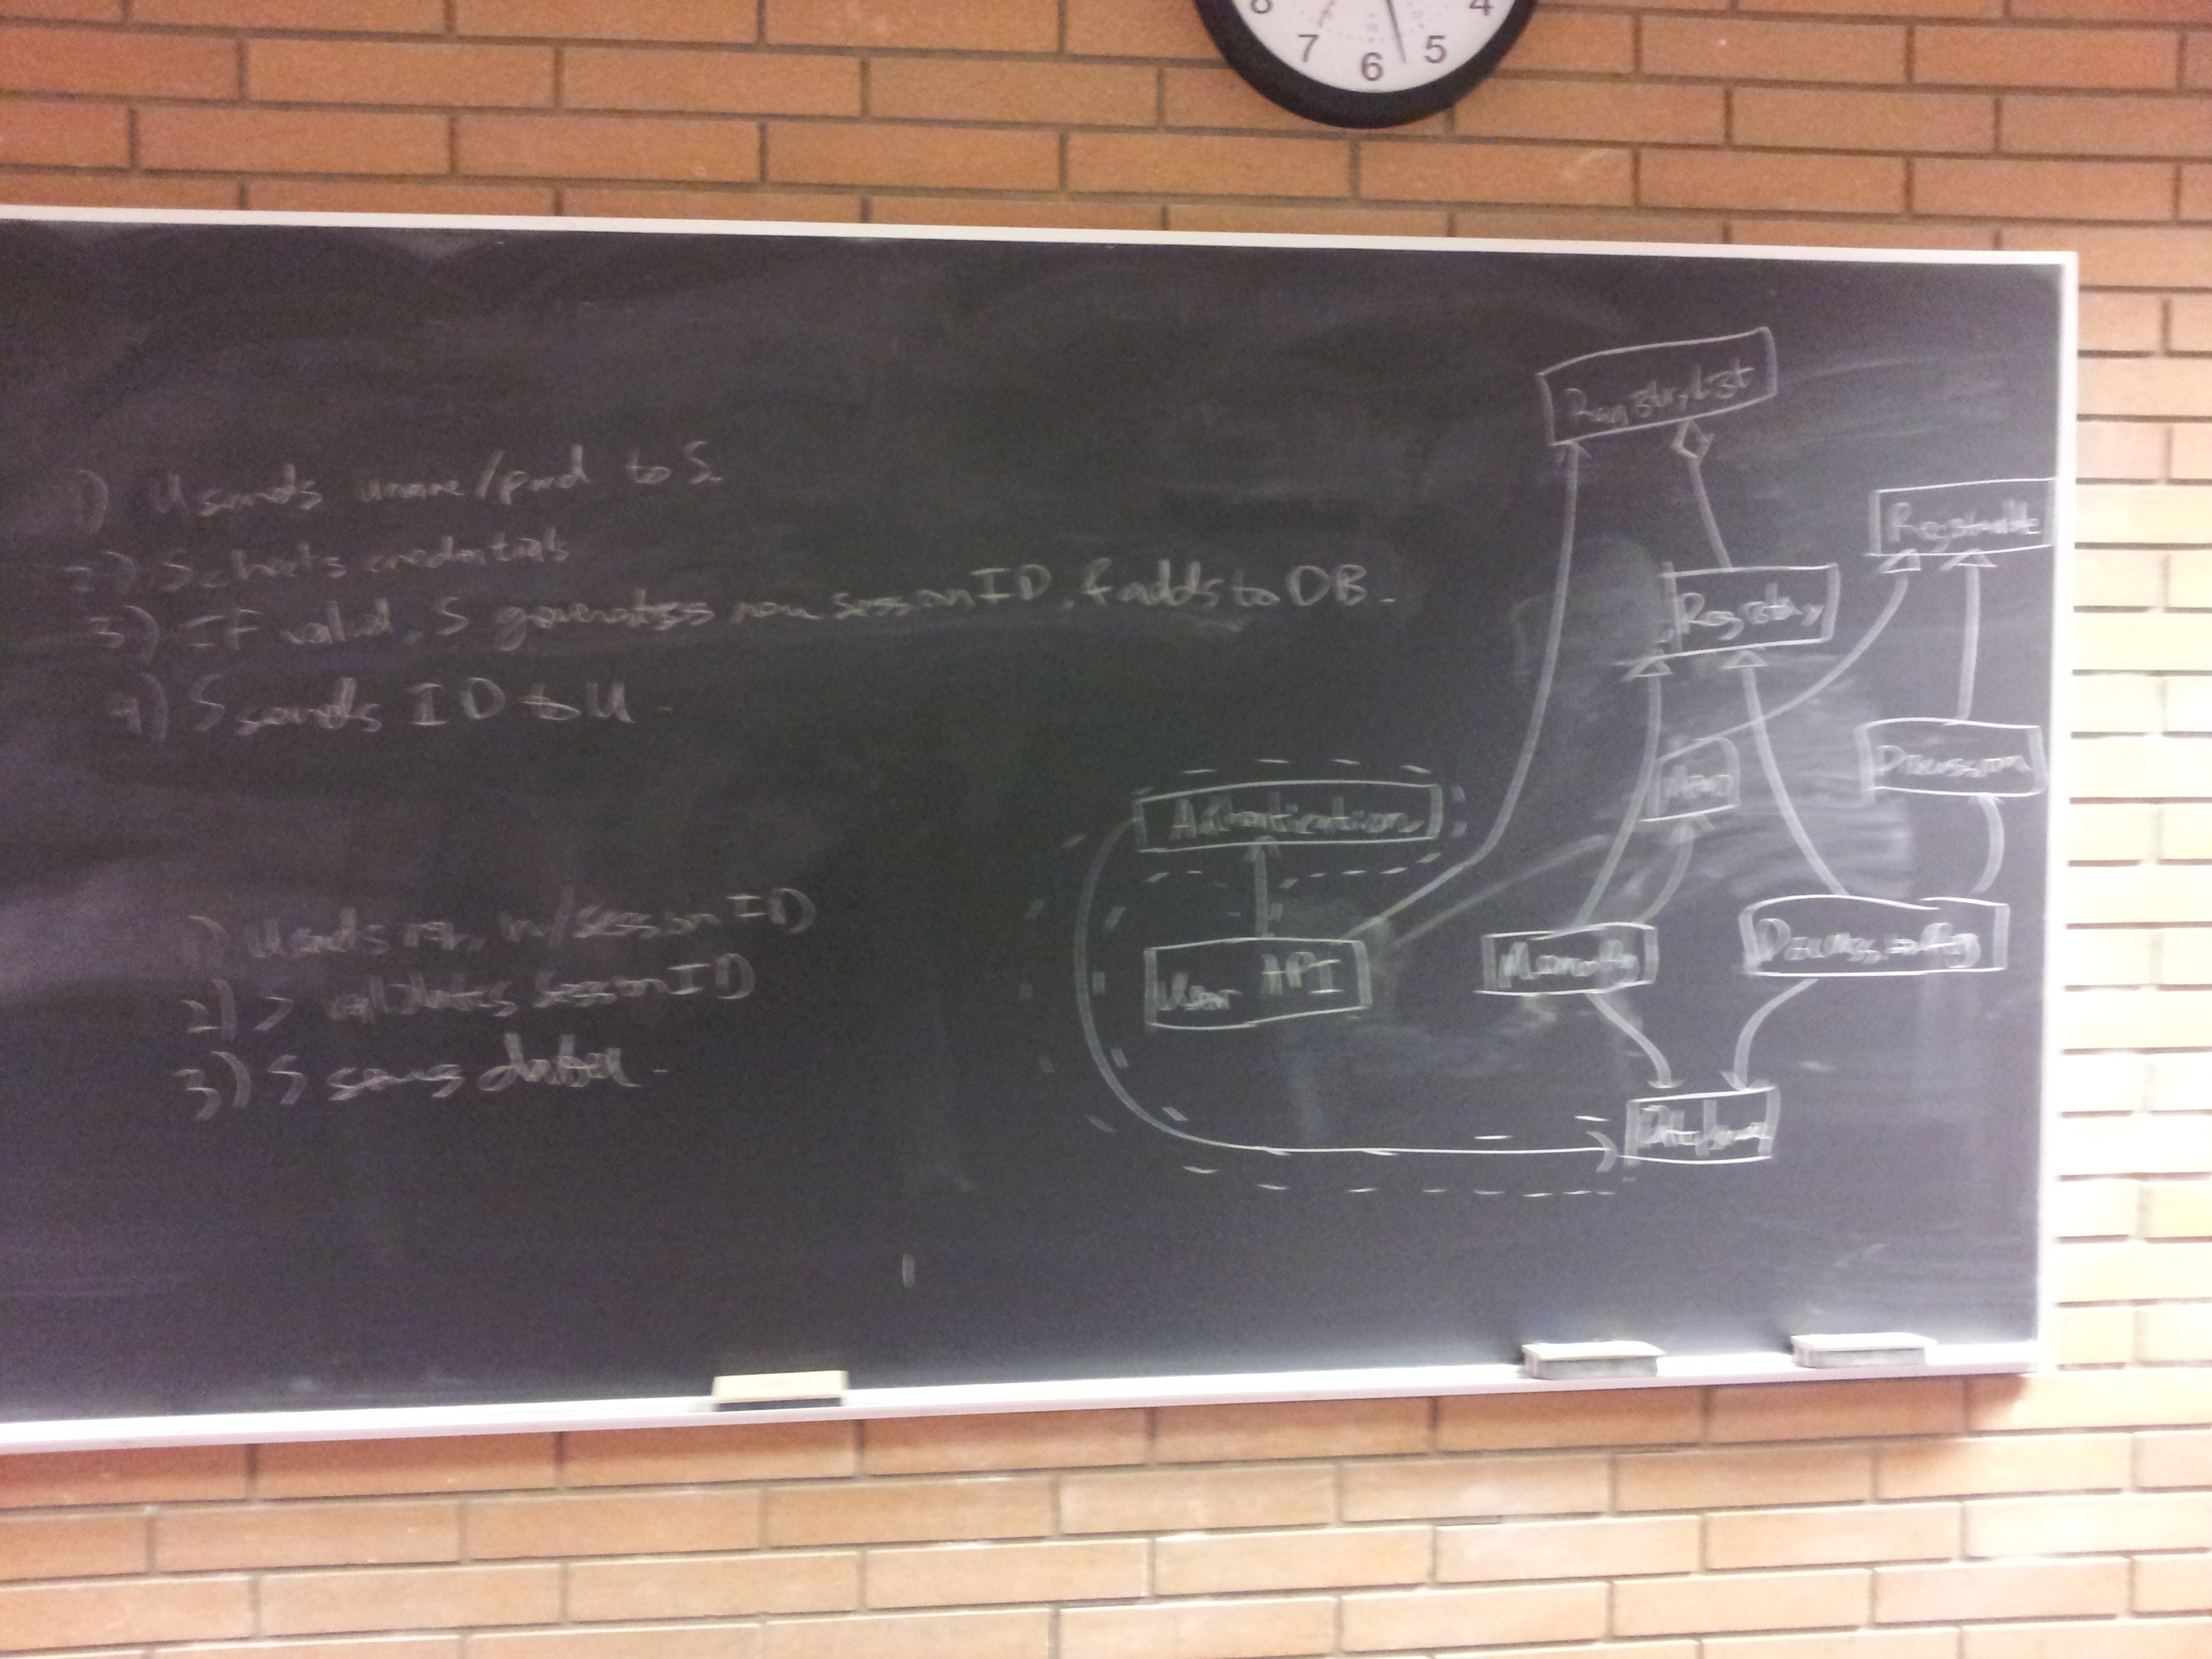 8 7 6 5 4
1) U sends uname/pwd to S.
2) S checks credentials
3) If valid, S generates new session ID, & adds to DB.
4) S sends ID to U.
1) U sends req. w/ session ID
2) S validates session ID
3) S sends data.
RegistryList
Registrable
Registry
Discussion
Authentication
User API
Database